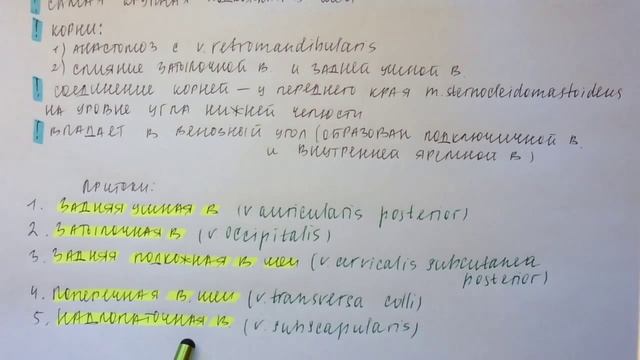 ! САМАЯ КРУПНАЯ ПОДКОЖНАЯ В. ШЕИ
! КОРНИ:
1) АНАСТОМОЗ С v. retromandibularis
2) СЛИЯНИЕ ЗАТЫЛОЧНОЙ В. И ЗАДНЕЙ УШНОЙ В.
! СОЕДИНЕНИЕ КОРНЕЙ – У ПЕРЕДНЕГО КРАЯ m. sternocleidomastoideus
НА УРОВНЕ УГЛА НИЖНЕЙ ЧЕЛЮСТИ
! ВПАДАЕТ В ВЕНОЗНЫЙ УГОЛ (ОБРАЗОВАН ПОДКЛЮЧИЧНОЙ В.
И ВНУТРЕННЕЙ ЯРЕМНОЙ В)
ПРИТОКИ:
1. ЗАДНЯЯ УШНАЯ В (v auricularis posterior)
2. ЗАТЫЛОЧНАЯ В (v occipitalis)
3. ЗАДНЯЯ ПОДКОЖНАЯ В ШЕИ (v. cervicalis subcutanea
posterior)
4. ПОПЕРЕЧНАЯ В. ШЕИ (v. transversa colli)
5. НАДЛОПАТОЧНАЯ В (v. subscapularis)